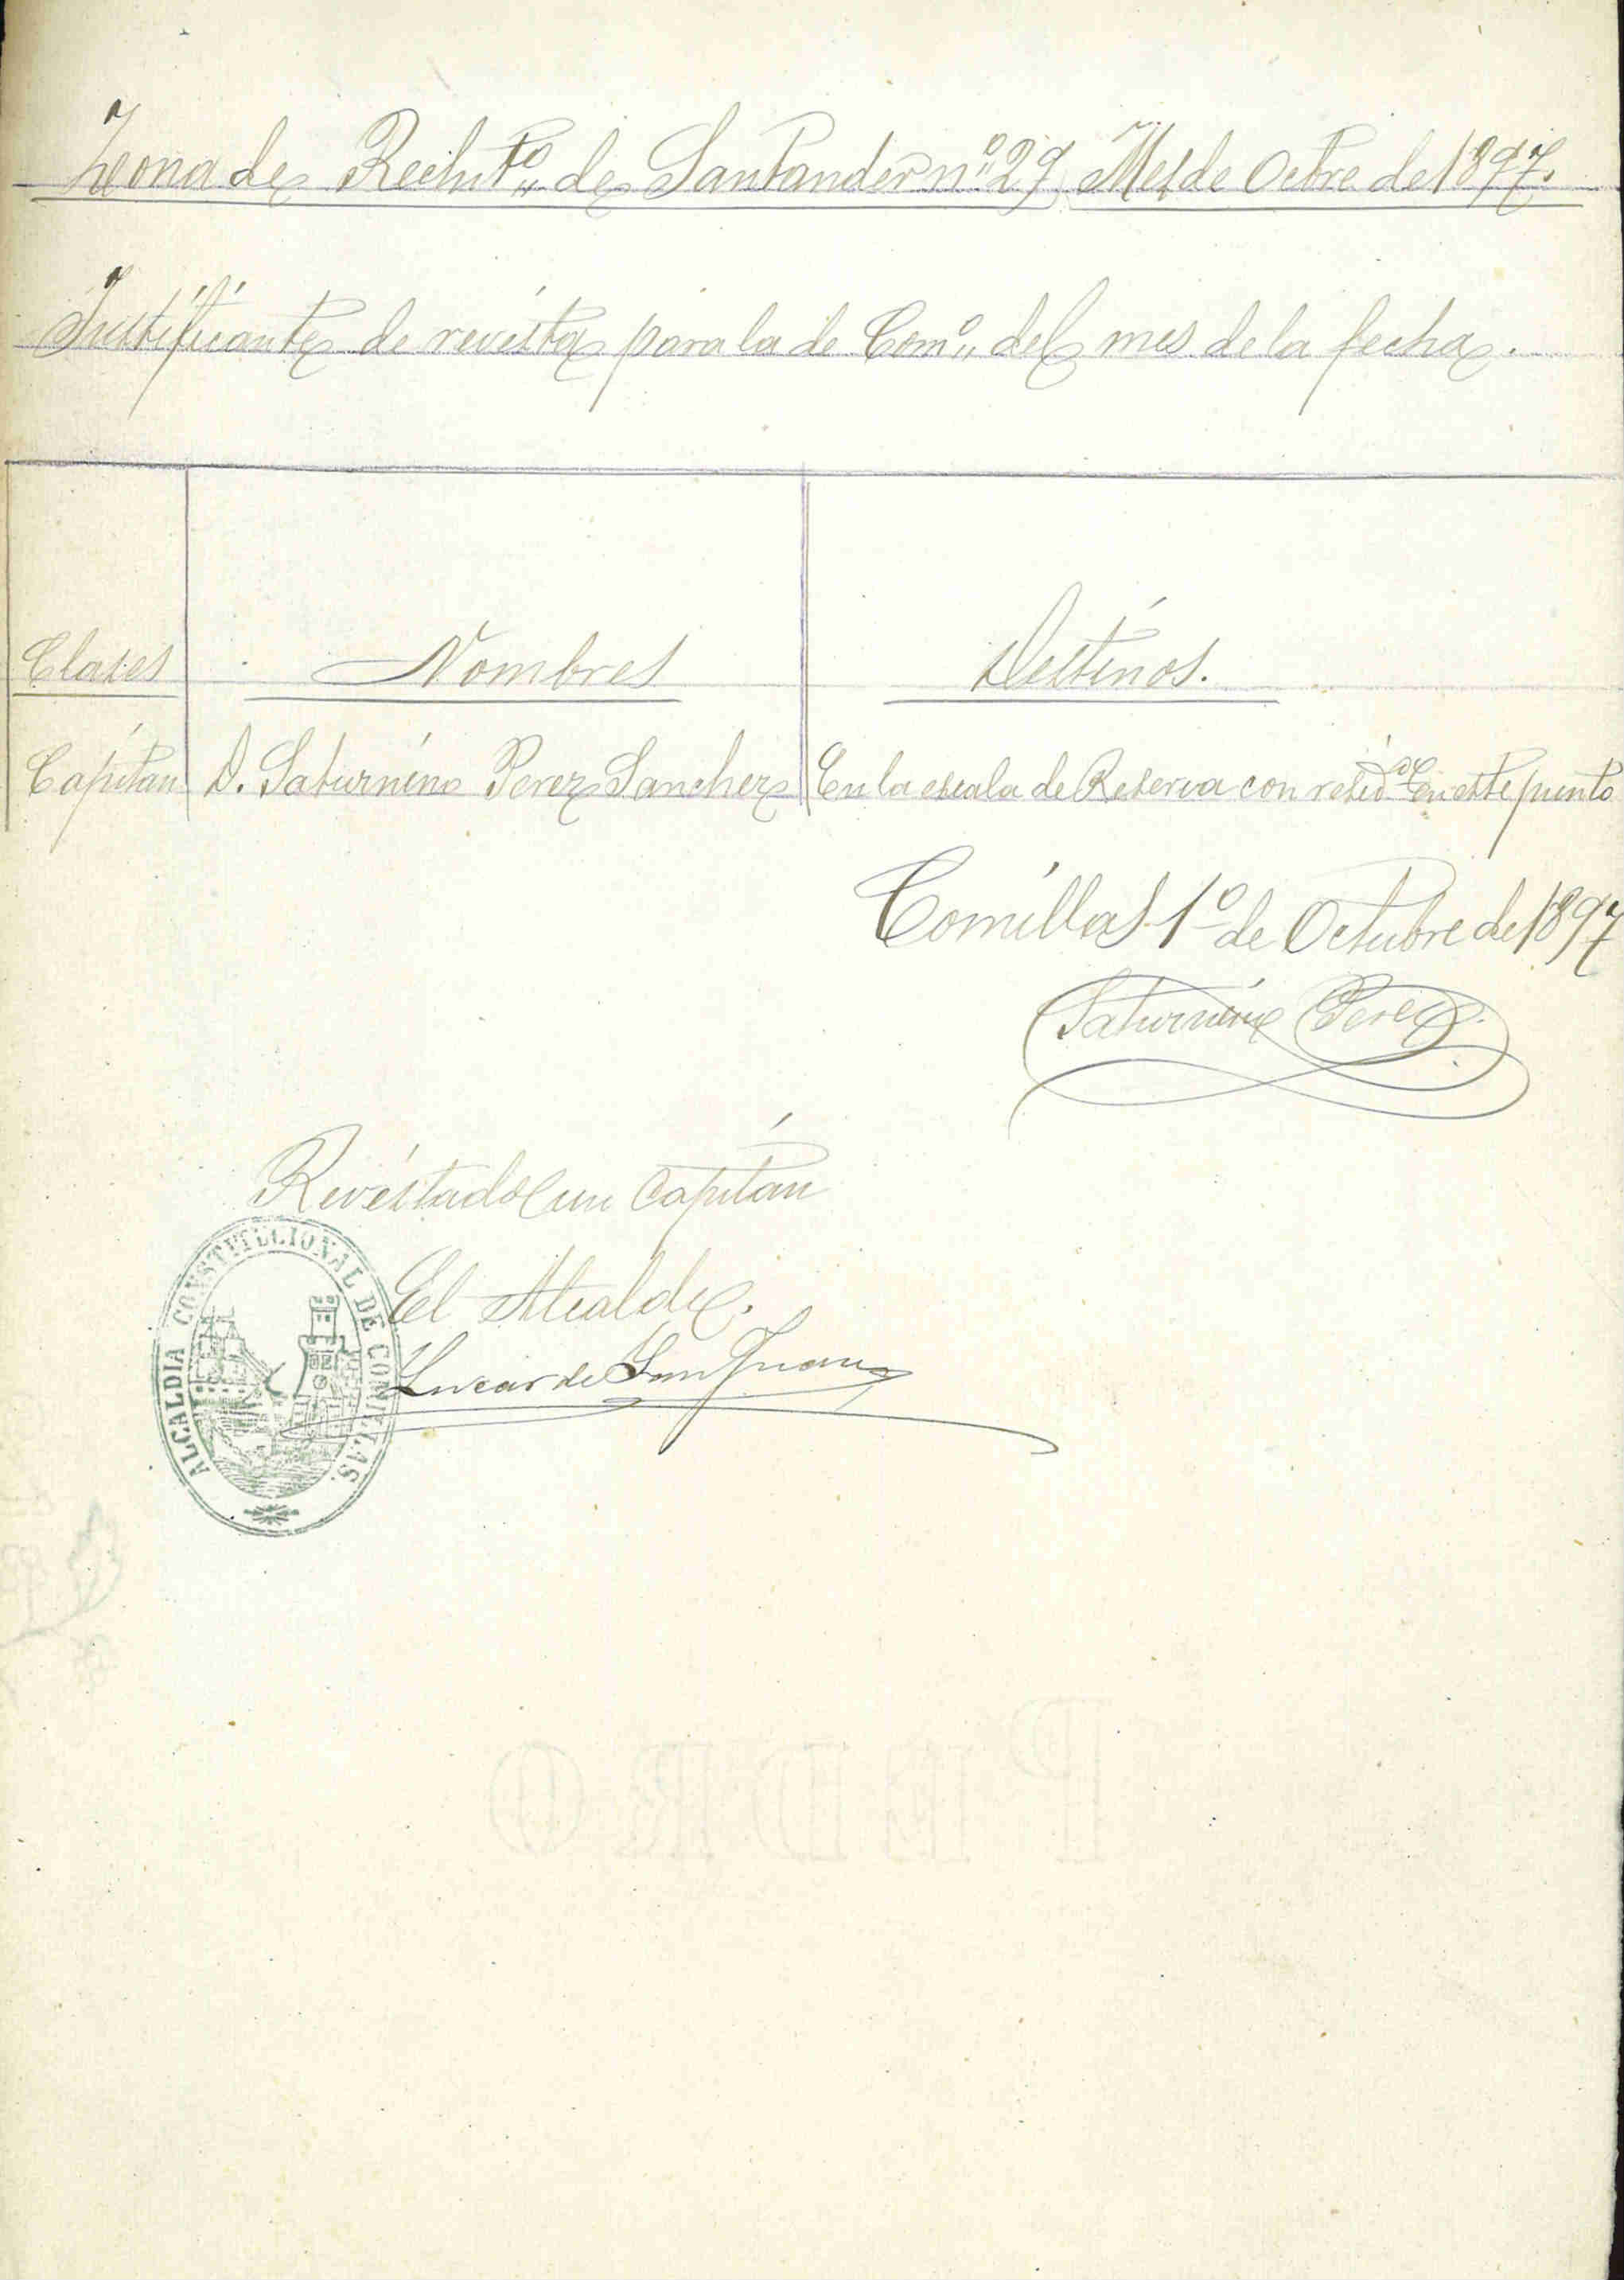 Zona de Reclutto de Santander nº 29 Mes de Octbre de 1897.
Justificante de revista para la de Como del mes de la fecha.
Clases Nombres Destinos.
Capitan D. Saturnino Perez Sanchez En la escala de Reserva con residca en este punto
Comillas 1º de Octubre de 1897
Saturnino Perez
Revistado un Capitan
El Alcalde.
de San Juan
ALCALDIA CONSTITUCIONAL DE COMILLAS.
PEDRO